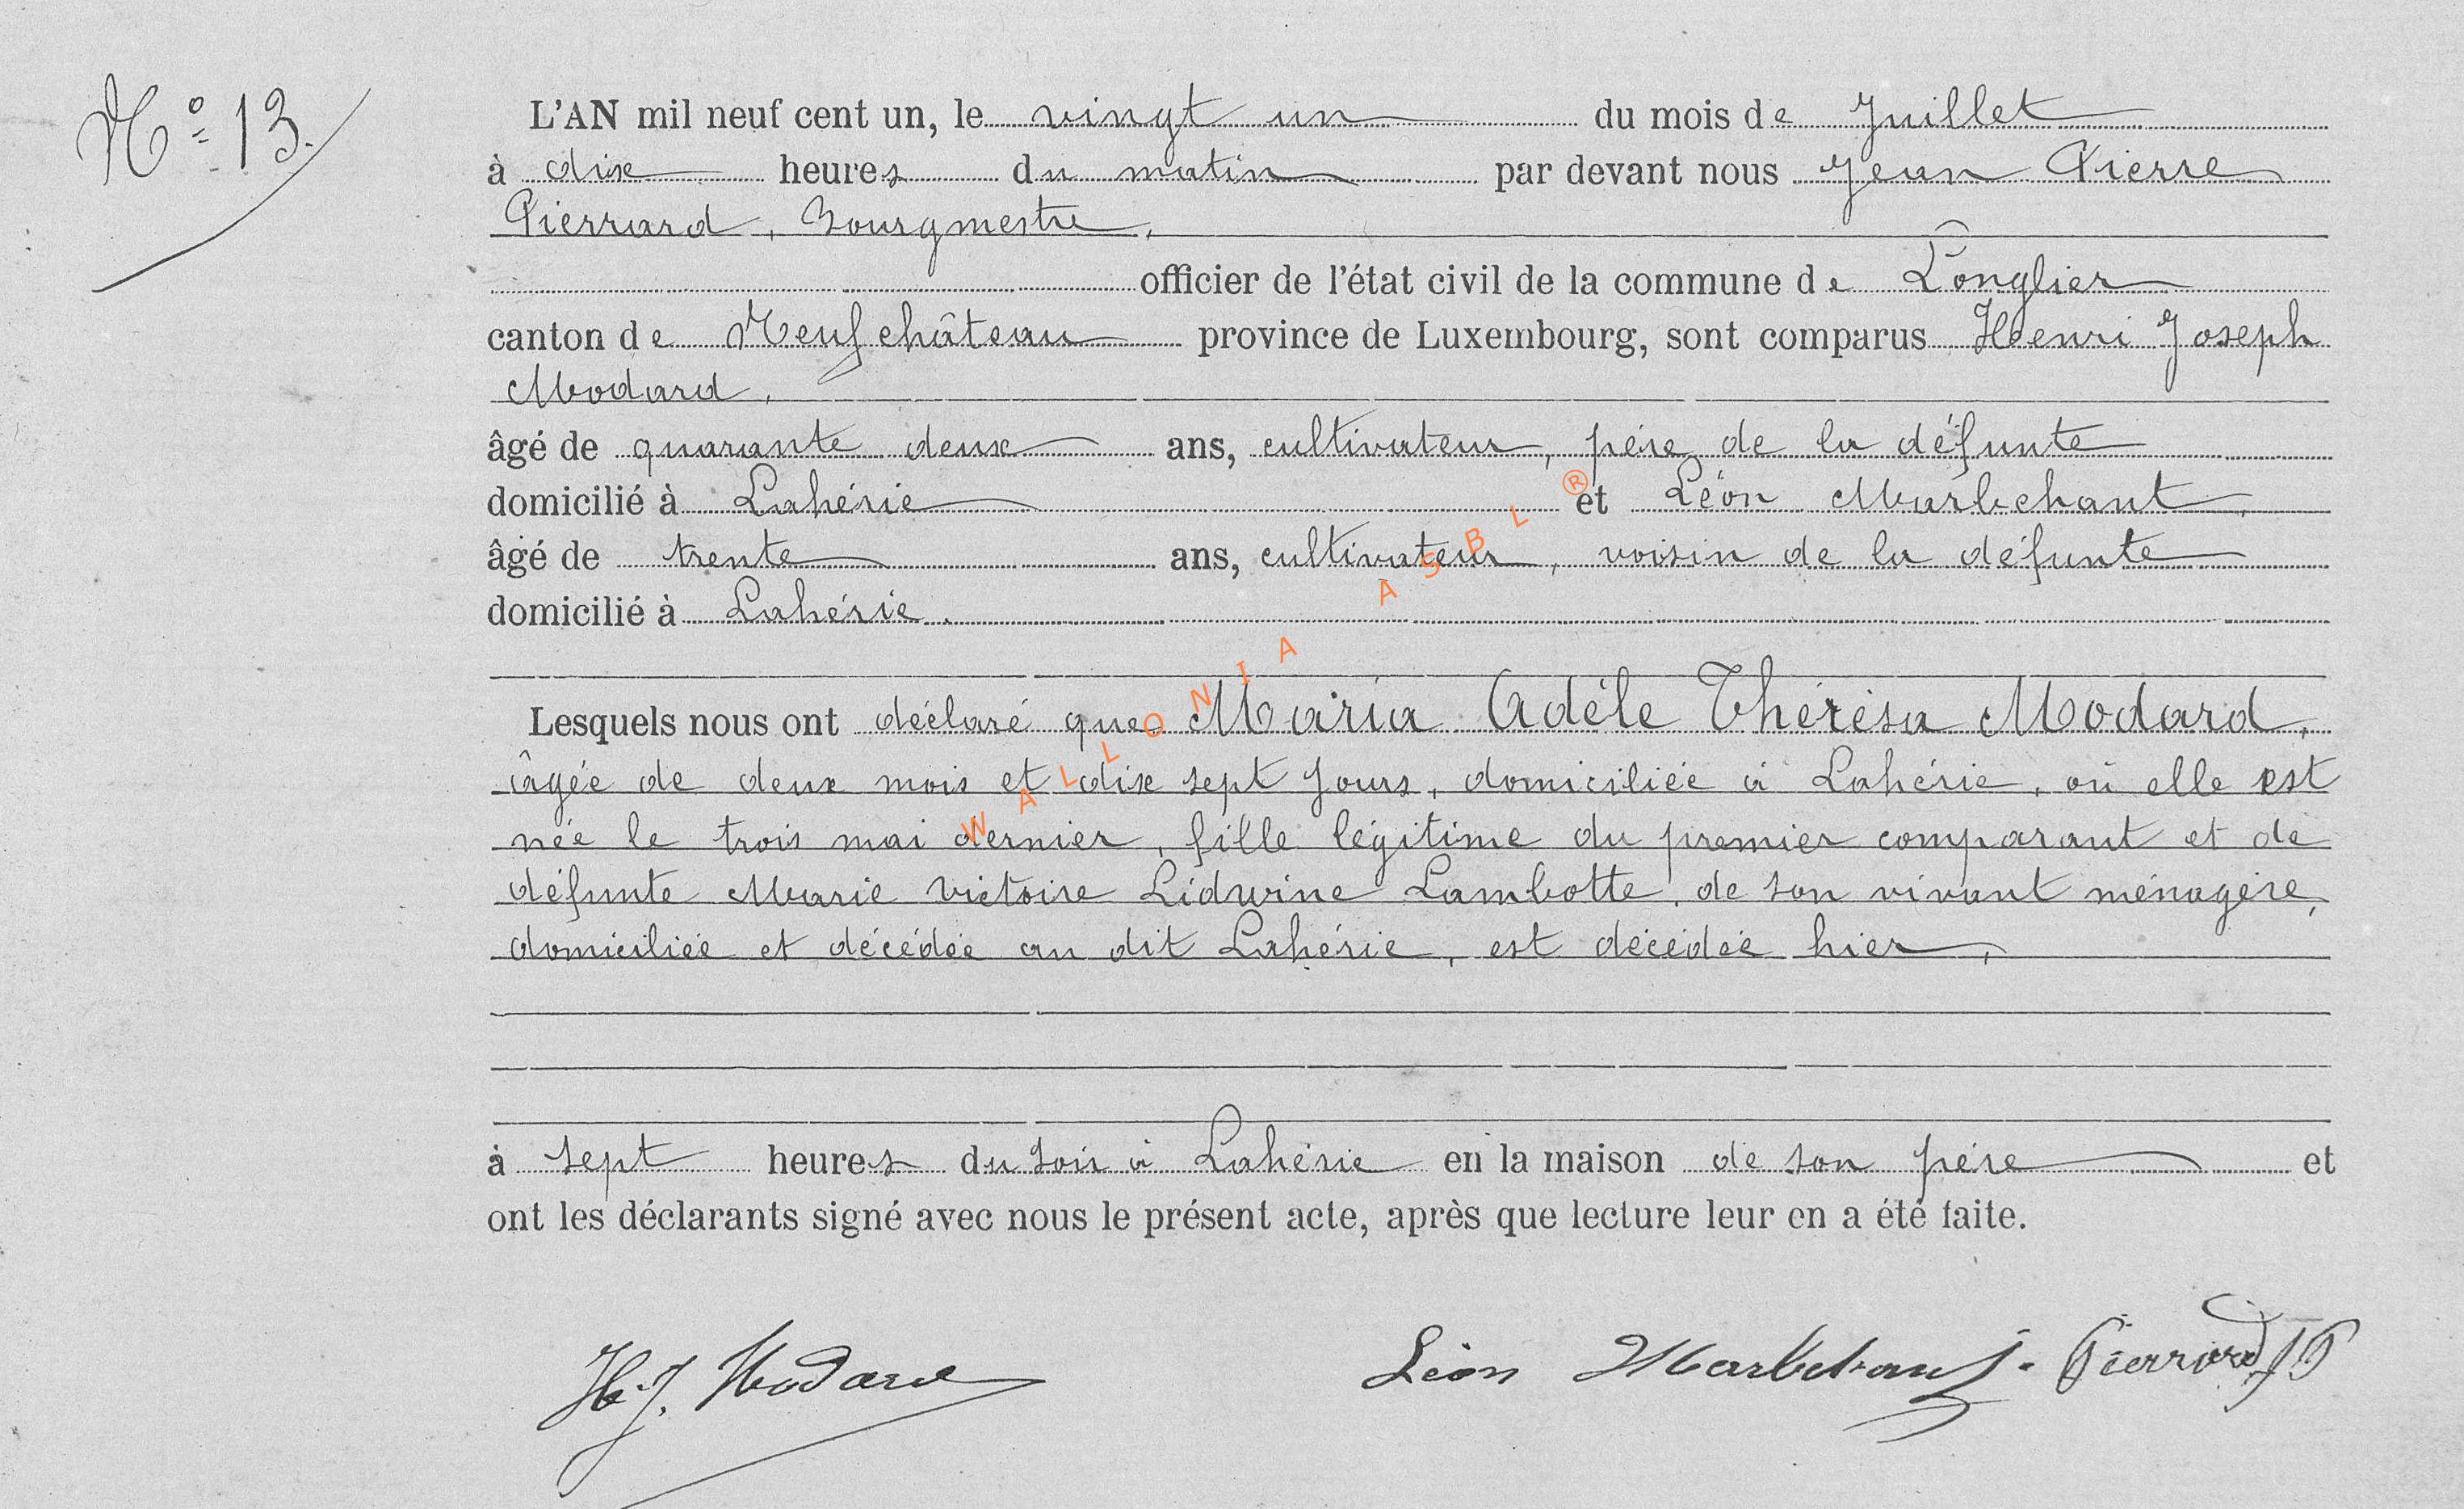 Nº 13.
L'AN mil neuf cent un, le vingt un du mois de Juillet
à dix heures du matin par devant nous Jean Pierre
Pierrard, Bourgmestre,
officier de l'état civil de la commune de Longlier
canton de Neufchâteau province de Luxembourg, sont comparus Henri Joseph
Modard,
âgé de quarante deux ans, cultivateur, père de la défunte
domicilié à Lahérie et Léon Marbehant,
âgé de trente ans, cultivateur, voisin de la défunte
domicilié à Lahérie.
Lesquels nous ont déclaré que Maria Adèle Thérésa Modard,
âgée de deux mois et dix sept jours, domiciliée à Lahérie, où elle est
née le trois mai dernier, fille légitime du premier comparant et de
défunte Marie Victoire Lidwine Lambotte, de son vivant ménagère,
domiciliée et décédée au dit Lahérie, est décédée hier,
à sept heures du soir à Lahérie en la maison de son père et
ont les déclarants signé avec nous le présent acte, après que lecture leur en a été faite.
H. J. Modard Léon Marbehant. Pierrard JP
WALLONIA ASBL ®